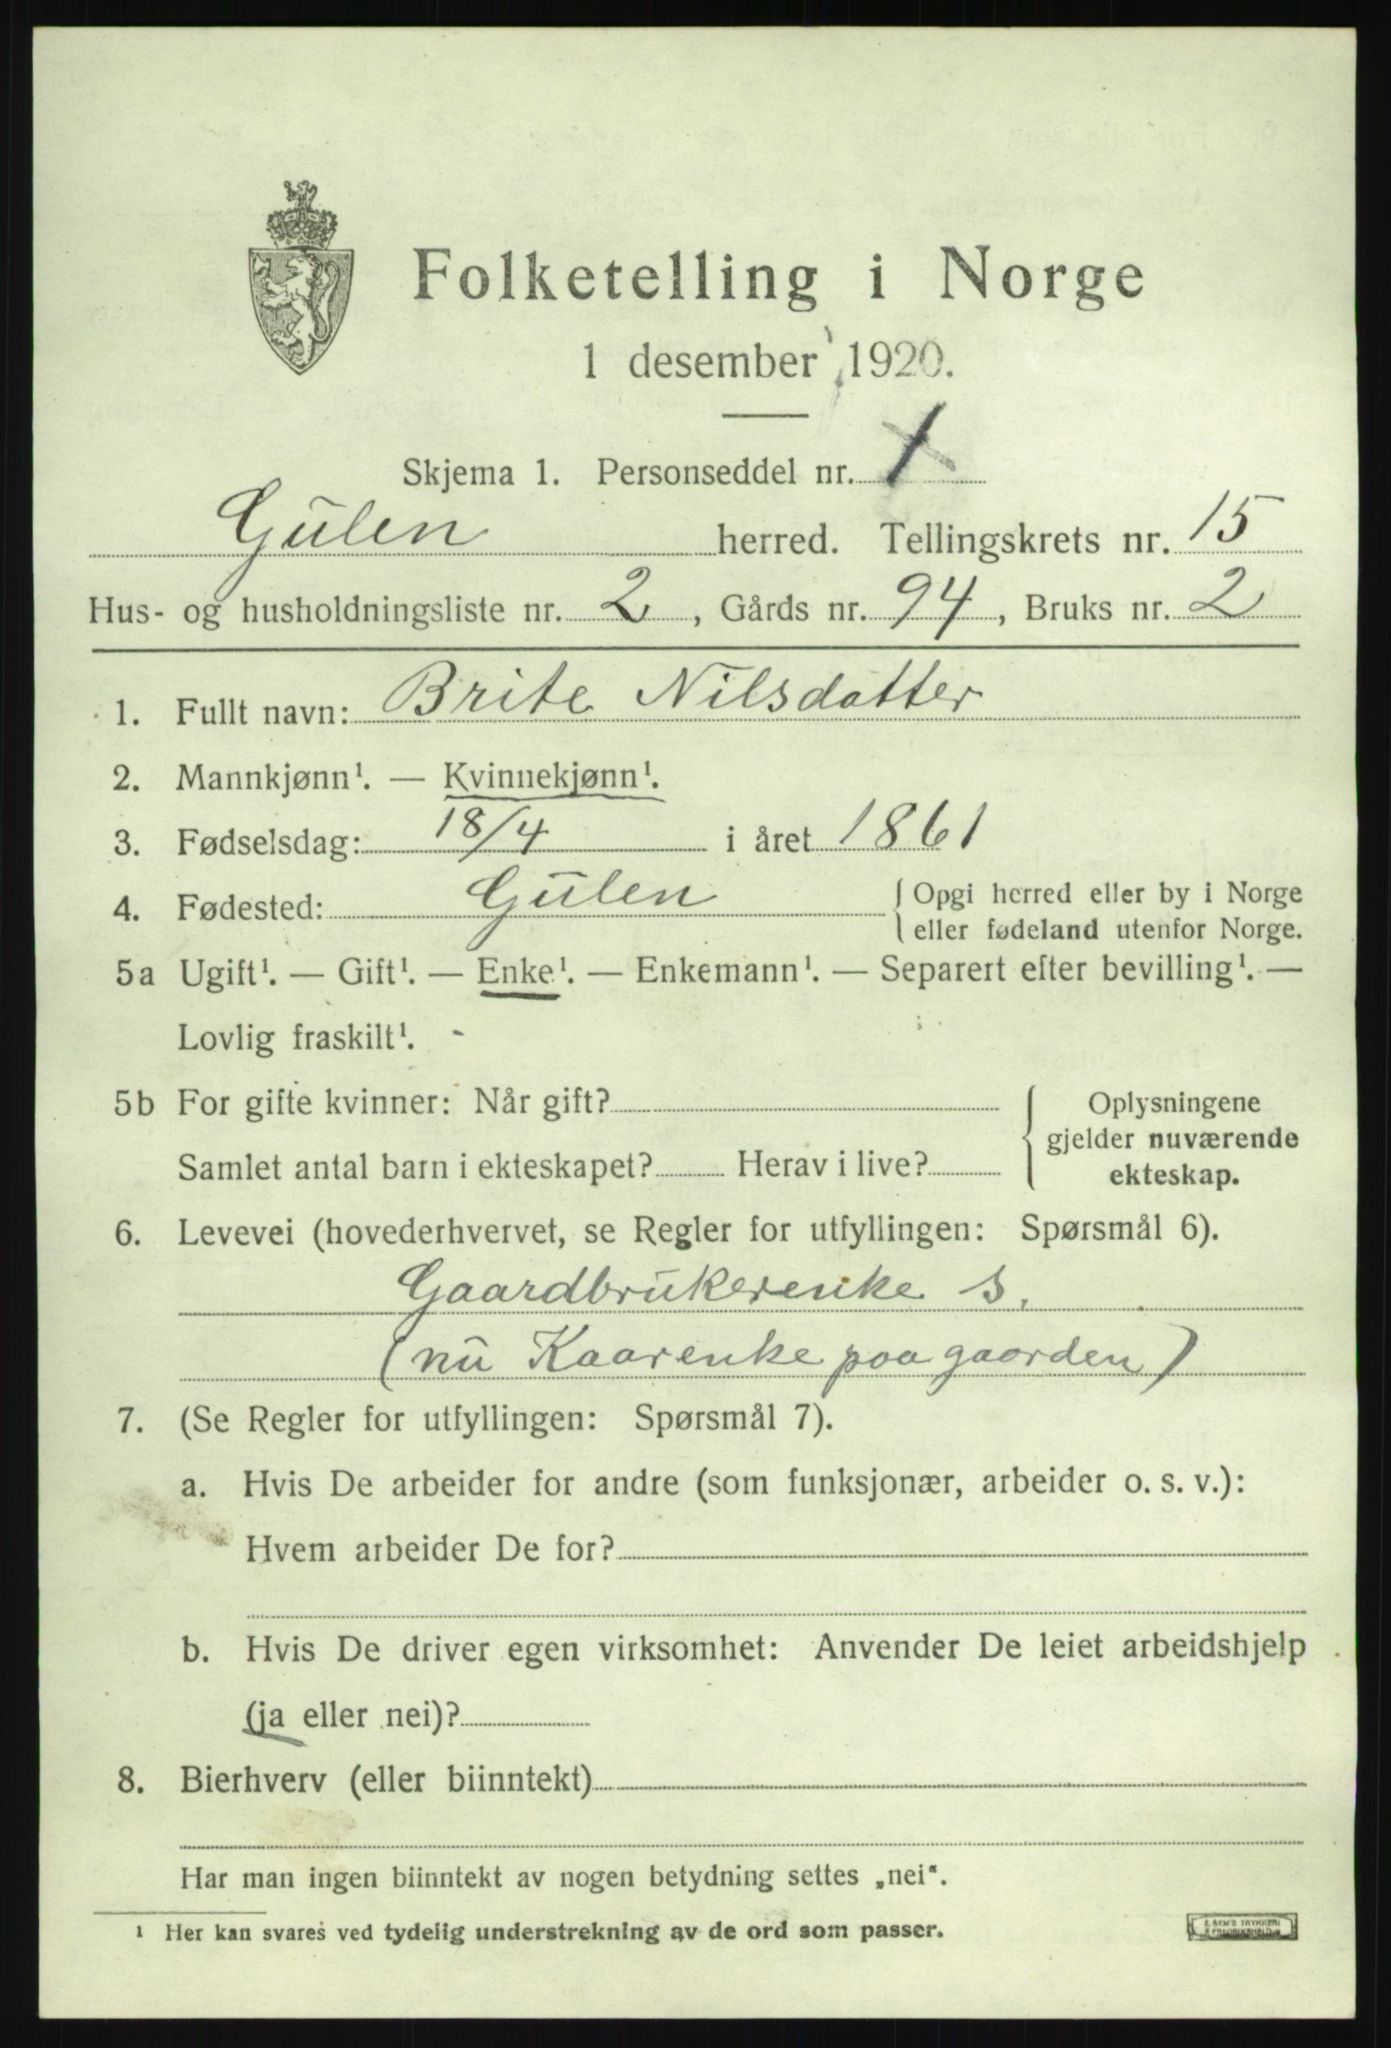 Folketelling i Norge
1 desember 1920.
Skjema 1. Personseddel nr. 1
Gülen herred. Tellingskrets nr. 15
Hus- og husholdningsliste nr. 2, Gårds nr. 94, Bruks nr. 2
1. Fullt navn: Brite Nilsdatter
2. Mannkjønn¹. — Kvinnekjønn¹.
3. Fødselsdag: 18/4 i året 1861
4. Fødested: Gülen { Opgi herred eller by i Norge
eller fødeland utenfor Norge.
5a Ugift¹. — Gift¹. — Enke¹. — Enkemann¹. — Separert efter bevilling¹. —
Lovlig fraskilt¹.
5b For gifte kvinner: Når gift?
Samlet antal barn i ekteskapet? Herav i live?
{ Oplysningene
gjelder nuværende
ekteskap.
6. Levevei (hovederhvervet, se Regler for utfyllingen: Spørsmål 6).
Gaardbrukerenke s.
(nu Kaarenke paa gaarden)
7. (Se Regler for utfyllingen: Spørsmål 7).
a. Hvis De arbeider for andre (som funksjonær, arbeider o. s. v.):
Hvem arbeider De for?
b. Hvis De driver egen virksomhet: Anvender De leiet arbeidshjelp
(ja eller nei)?
8. Bierhverv (eller biinntekt)
Har man ingen biinntekt av nogen betydning settes „nei“.
¹ Her kan svares ved tydelig understrekning av de ord som passer.